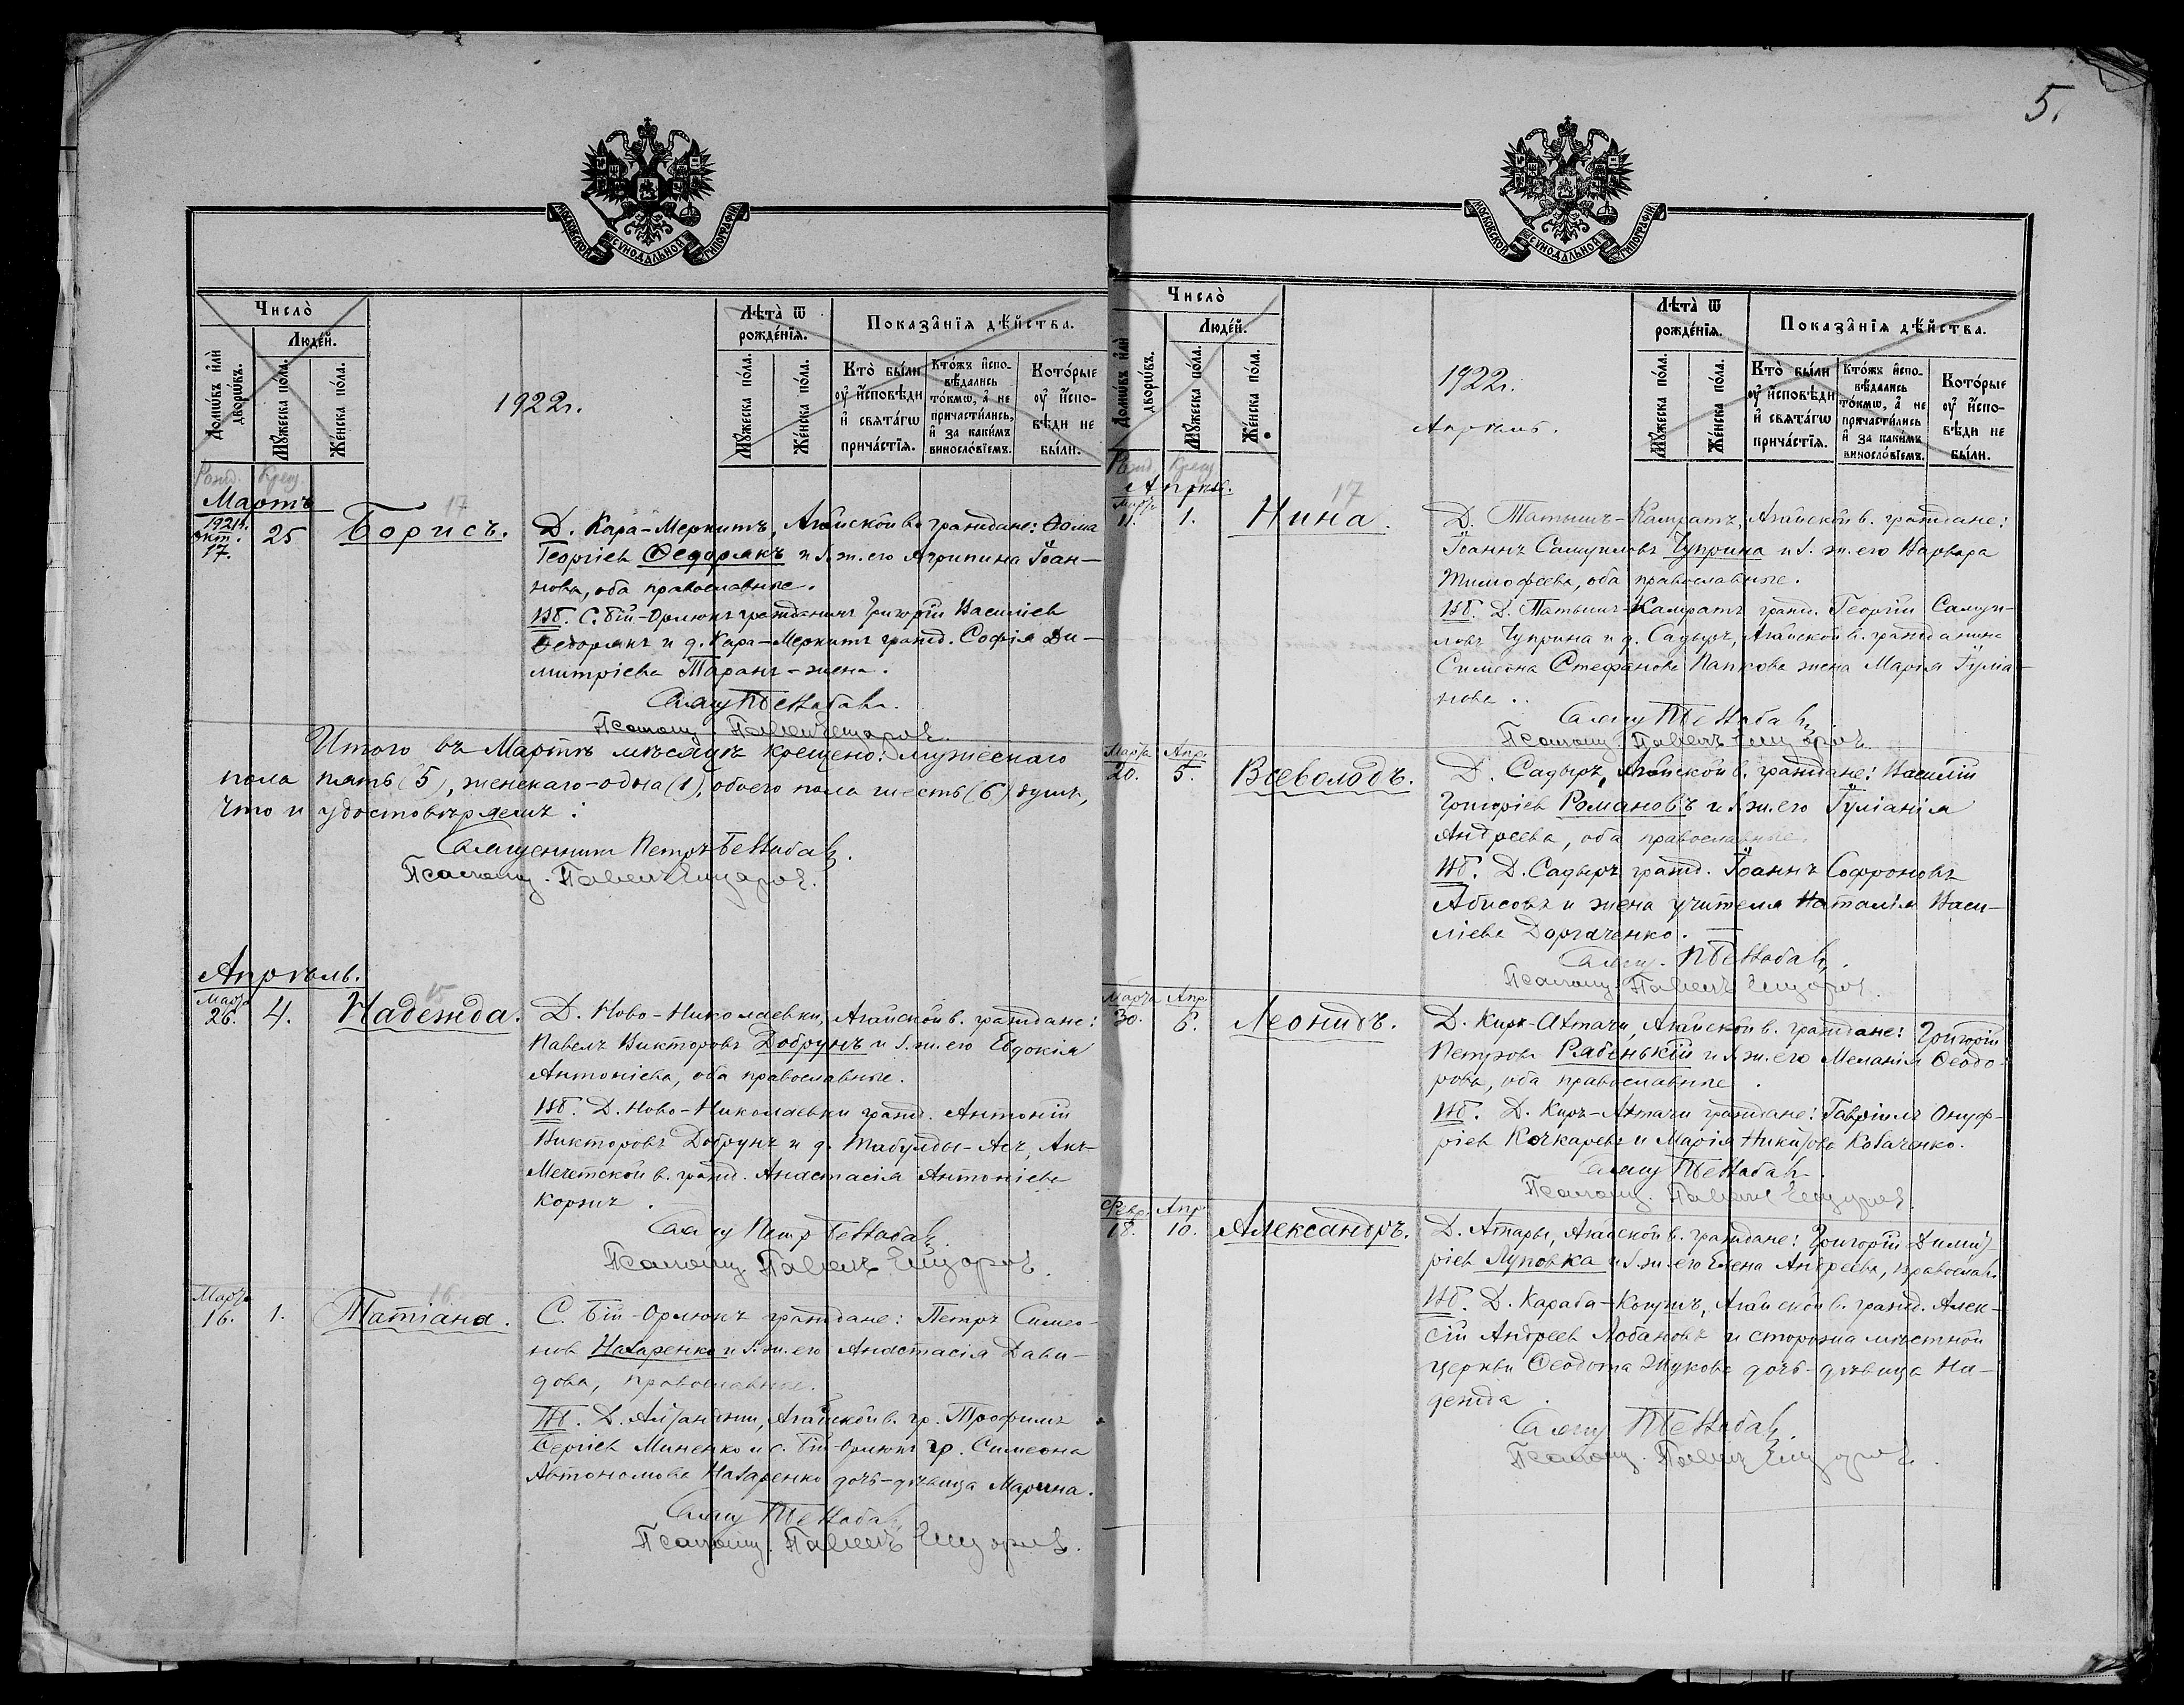 МОСКОВСКОЙ СУНОДАЛЬНОЙ ТИПОГРАФІИ
Число̀
Людéй.
Домѡ́въ и҆лѝ дворѡ́въ.
Мꙋ́жеска по́ла.
Же́нска по́ла.
1922г.
Лѣ́та ѿ рожде́нїѧ.
Мꙋ́жеска по́ла.
Же́нска по́ла.
Показа̑нїѧ дѣ́йства.
Кто̀ бы́ли оу҆ и҆сповѣ́ди и҆ свѧта́гѡ прича́стїѧ.
Кто́жъ и҆спо-вѣ́дались то́кмѡ, а҆ не причасти́лись, и҆ за каки́мъ винословїемъ.
Кото́рые оу҆ и҆спо-вѣ́ди не бы́ли.
Рожд. Крещ.
Мартъ
1921г. окт. 17. 25 Борисъ. 17
Д. Кара-Меркитъ, Агайской в. граждане: Ѳома
Георгіевъ Ѳедорякъ и з. ж. его Агрипина Іоан-
нова, оба православные.
Вб. С. Бій-Орлюкъ гражданинъ Григорій Василіев
Ѳедорякъ и д. Кара-Меркитъ гражд. Софія Ди-
митріева Таранъ-жена.
Свящ
Псаломщ. Павелъ
Итого въ Мартѣ мѣсяцѣ крещено: мужескаго
пола пять (5), женскаго-одна (1), обоего пола шесть (6) душъ,
что и удостовѣряемъ:
Священникъ Петръ
Псаломщ. Павелъ
Апрѣль.
Марта 26. 4. Надежда. 15
Д. Ново-Николаевки, Агайской в. граждане:
Павелъ Викторовъ Добрунъ и з. ж. его Евдокія
Антоніева, оба православные.
Вб. Д. Ново-Николаевки гражд. Антоній
Викторовъ Добрунъ и д. Табулды-Асъ, Ак-
Мечетской в. гражд. Анастасія Антоніева
Коржъ.
Свящ Петр
Псаломщ. Павелъ
Марта 16. 1. Татіана. 16
С. Бій-Орлюкъ граждане: Петръ Симео-
новъ Назаренко и з. ж. его Анастасія Дави-
дова, православные.
Вб. Д. Агайской в. гр. Трофимъ
Сергіев Миненко и с. Бій-Орлюкъ гр. Симеона
Автономова Назаренко дочь-дѣвица Марина.
Свящ
Псаломщ. Павелъ
5.
МОСКОВСКОЙ СУНОДАЛЬНОЙ ТИПОГРАФІИ
Число̀
Людéй.
Домѡ́въ и҆лѝ дворѡ́въ.
Мꙋ́жеска по́ла.
Же́нска по́ла.
1922г.
Апрѣль.
Лѣ́та ѿ рожде́нїѧ.
Мꙋ́жеска по́ла.
Же́нска по́ла.
Показа̑нїѧ дѣ́йства.
Кто̀ бы́ли оу҆ и҆сповѣ́ди и҆ свѧта́гѡ прича́стїѧ.
Кто́жъ и҆спо-вѣ́дались то́кмѡ, а҆ не причасти́лись, и҆ за каки́мъ винословїемъ.
Кото́рые оу҆ и҆спо-вѣ́ди не бы́ли.
Рожд. Крещ
Апрѣль.
Март 11. 1. Нина. 17
Д. Татышъ-Камратъ, Агайской в. граждане:
Іоаннъ Самуиловъ Чуприна и з. ж. его Варвара
Тимофеева, оба православные.
Вб. Д. Татышъ-Камратъ гражд. Георгій Самуи-
ловъ Чуприна и д. Садыръ, Агайской в. гражданина
Симеона Стефанова Папкова жена Марія Іуліа-
нова.
Свящ
Псаломщ. Павелъ
Марта 20. Апр. 5. Всеволодъ.
Д. Садыръ, Агайской в. граждане: Василій
Григоріев Романовъ и з. ж. его Іуліанія
Андреева, оба православные.
Вб. Д. Садыръ гражд. Іоаннъ Софроновъ
Абисовъ и жена учителя Наталія Васи-
ліева Доргаченко.
Свящ.
Псаломщ. Павелъ
Марта 30. Апр 6. Леонидъ.
Д. Киръ-Актачи, Агайской в. граждане: Григорій
Петровъ Рябенькій и з. ж. его Меланія Ѳеодо-
рова, оба православные.
Вб. Д. Киръ-Актачи граждане: Гавріилъ Онуф-
ріев Кочкаревъ и Марія Никитова Коваченко.
Свящ
Псаломщ. Павелъ
Февр. 18. Апр 10. Александръ.
Д. Атары, Агайской в. граждане: Григорій Димит-
ріев Луповка и з. ж. его Елена Андреева, православ.
Вб. Д. Караба-Кончекъ, Агайской в. гражд. Алек-
сій Андреев Лобановъ и сторожа мѣстной
церкви Ѳеодота Жукова дочь-дѣвица На-
дежда.
Свящ
Псаломщ. Павелъ